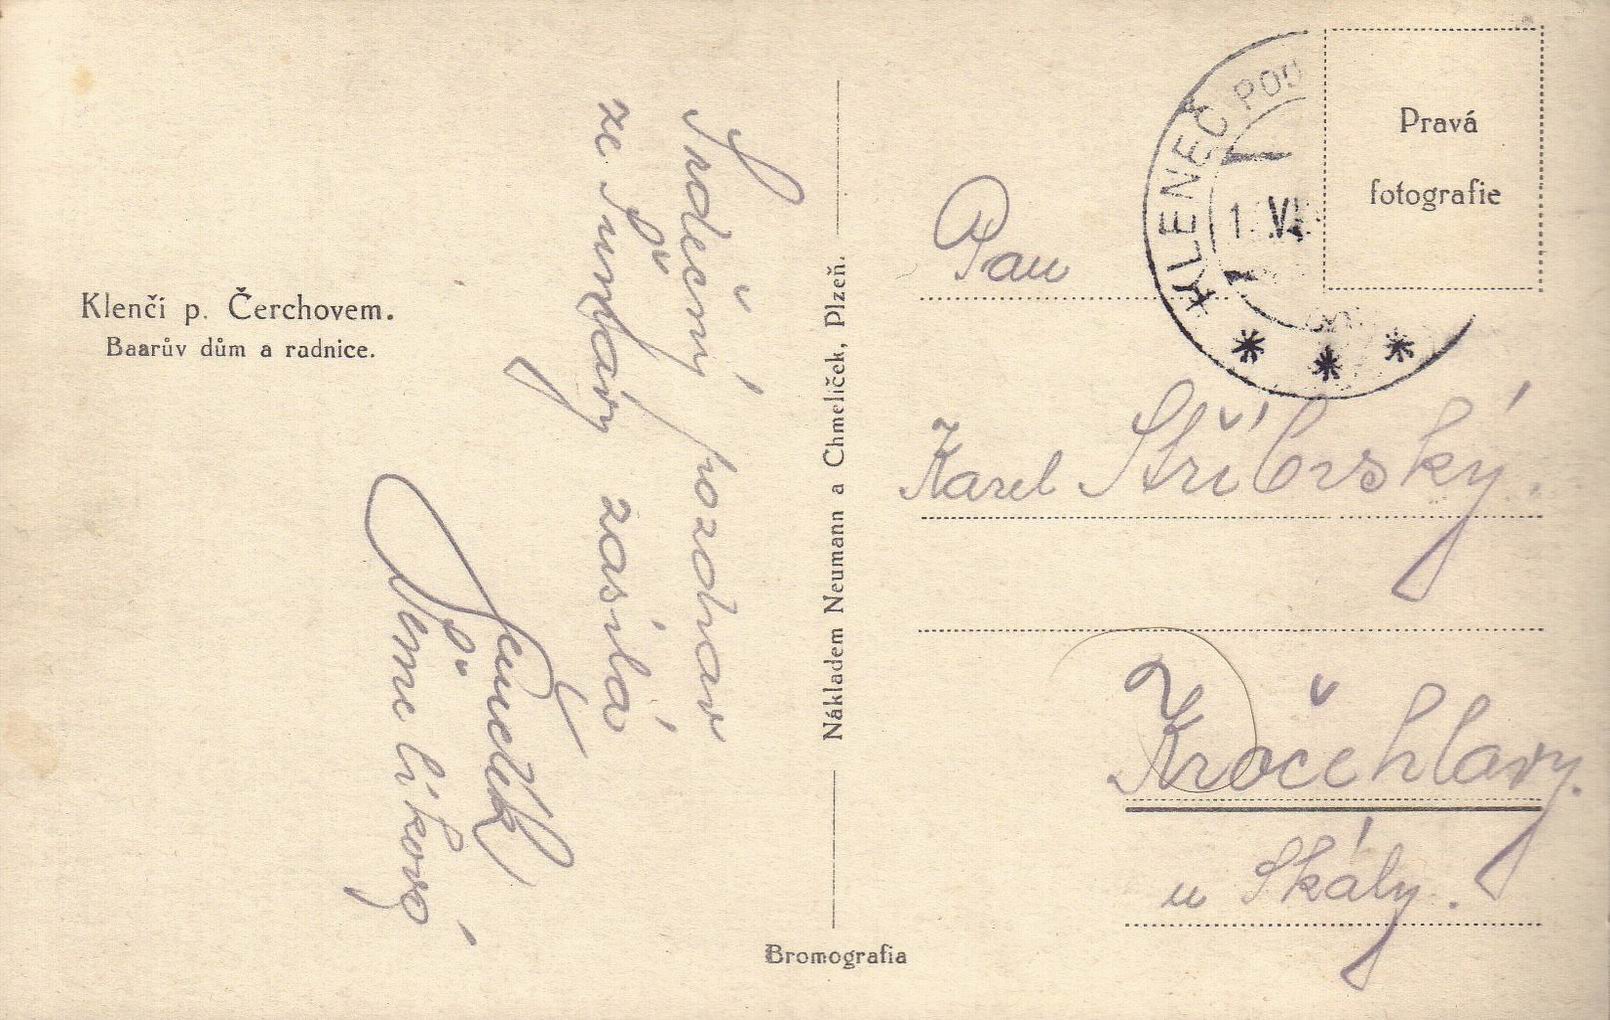 Klenčí p. Čerchovem.
Baarův dům a radnice.
Srdečný pozdrav
ze Šumavy zasílá
Nákladem Neumann a Chmelíček, Plzeň.
Bromografia
KLENEČ POD
1 VI
Pravá
fotografie
Pan
Karel Stříbrský.
Kročehlavy.
u Skály.